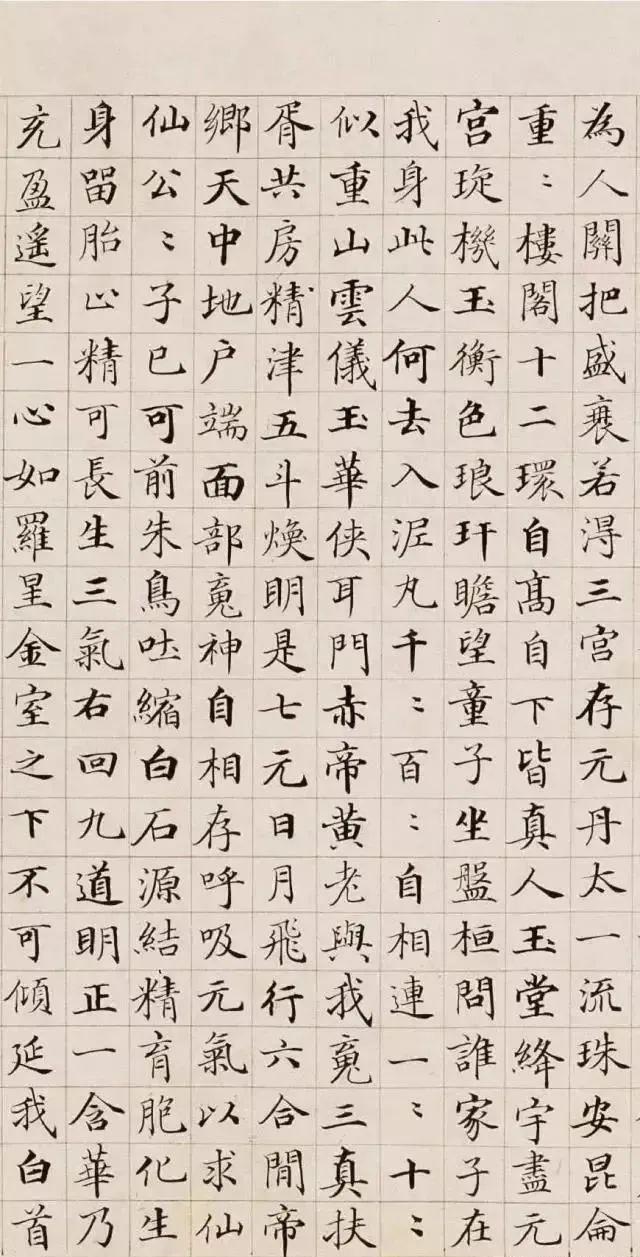 為人關把盛衰若得三宮存元丹太一流珠安昆侖
重〻樓閣十二環自髙自下皆真人玉堂絳宇盡元
宮琁機玉衡色琅玕瞻望童子坐盤桓問誰家子在
我身此人何去入泥丸千〻百〻自相連一〻十〻
似重山雲儀玉華俠耳門赤帝黃老與我䰟三真扶
胥共房精津五斗煥明是七元日月飛行六合間帝
鄉天中地户端面部䰟神自相存呼吸元氣以求仙
仙公〻子已可前朱鳥吐縮白石源結精育胞化生
身留胎止精可長生三氣右回九道明正一含華乃
充盈遙望一心如羅星金室之下不可傾延我白首